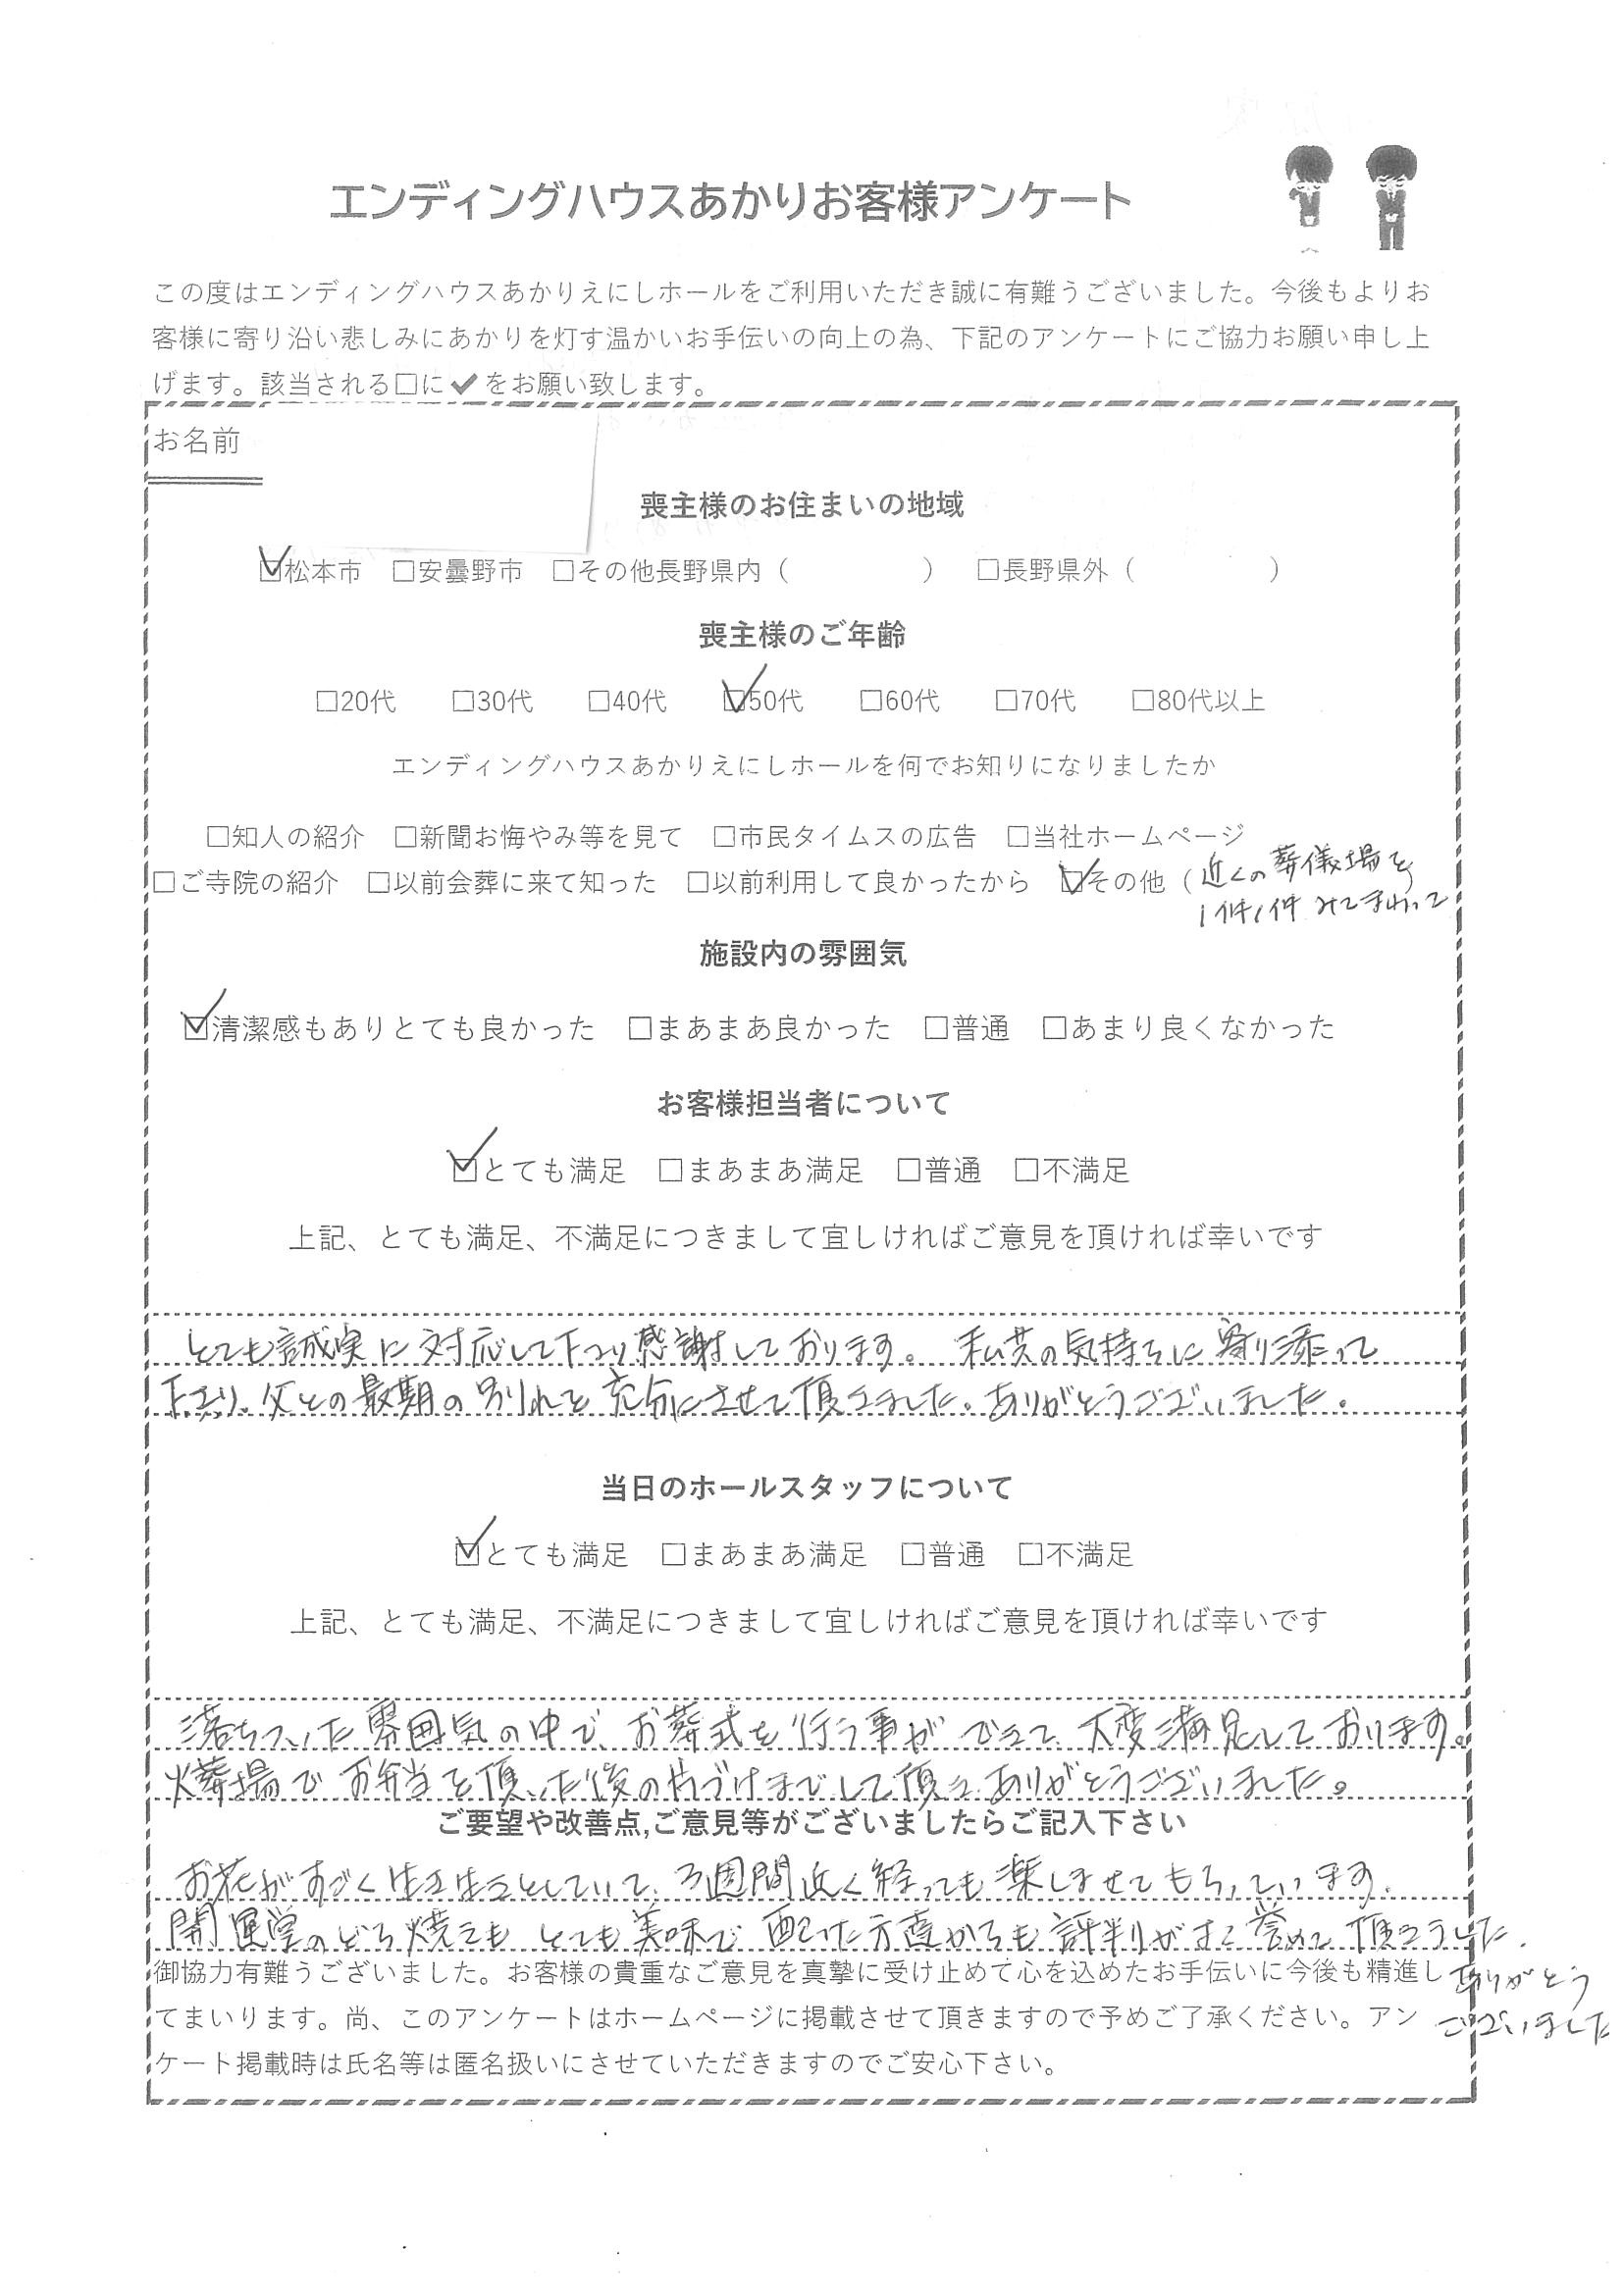 エンディングハウスあかりお客様アンケート
この度はエンディングハウスあかりえにしホールをご利用いただき誠に有難うございました。今後もよりお
客様に寄り沿い悲しみにあかりを灯す温かいお手伝いの向上の為、下記のアンケートにご協力お願い申し上
げます。該当される□に✔をお願い致します。
お名前
喪主様のお住まいの地域
☑松本市 □安曇野市 □その他長野県内（ ） □長野県外（ ）
喪主様のご年齢
□20代 □30代 □40代 ☑50代 □60代 □70代 □80代以上
エンディングハウスあかりえにしホールを何でお知りになりましたか
□知人の紹介 □新聞お悔やみ等を見て □市民タイムスの広告 □当社ホームページ
□ご寺院の紹介 □以前会葬に来て知った □以前利用して良かったから ☑その他（近くの葬儀場を
1件1件みてまわって
施設内の雰囲気
☑清潔感もありとても良かった □まあまあ良かった □普通 □あまり良くなかった
お客様担当者について
☑とても満足 □まあまあ満足 □普通 □不満足
上記、とても満足、不満足につきまして宜しければご意見を頂ければ幸いです
とても誠実に対応して下さり感謝しております。私共の気持ちに寄り添って
下さり、父との最期の別れを充分にさせて頂きました。ありがとうございました。
当日のホールスタッフについて
☑とても満足 □まあまあ満足 □普通 □不満足
上記、とても満足、不満足につきまして宜しければご意見を頂ければ幸いです
落ちついた雰囲気の中で、お葬式を行う事ができて、大変満足しております。
火葬場でお弁当を頂いた後の片づけまでして頂き、ありがとうございました。
ご要望や改善点,ご意見等がございましたらご記入下さい
お花がすごく生き生きとしていて、3週間近く経っても楽しませてもらっています。
開運堂のどら焼きもとても美味で配った方達からも評判がよく誉めて頂きました。
ありがとう
ございました
御協力有難うございました。お客様の貴重なご意見を真摯に受け止めて心を込めたお手伝いに今後も精進し
てまいります。尚、このアンケートはホームページに掲載させて頂きますので予めご了承ください。アン
ケート掲載時は氏名等は匿名扱いにさせていただきますのでご安心下さい。